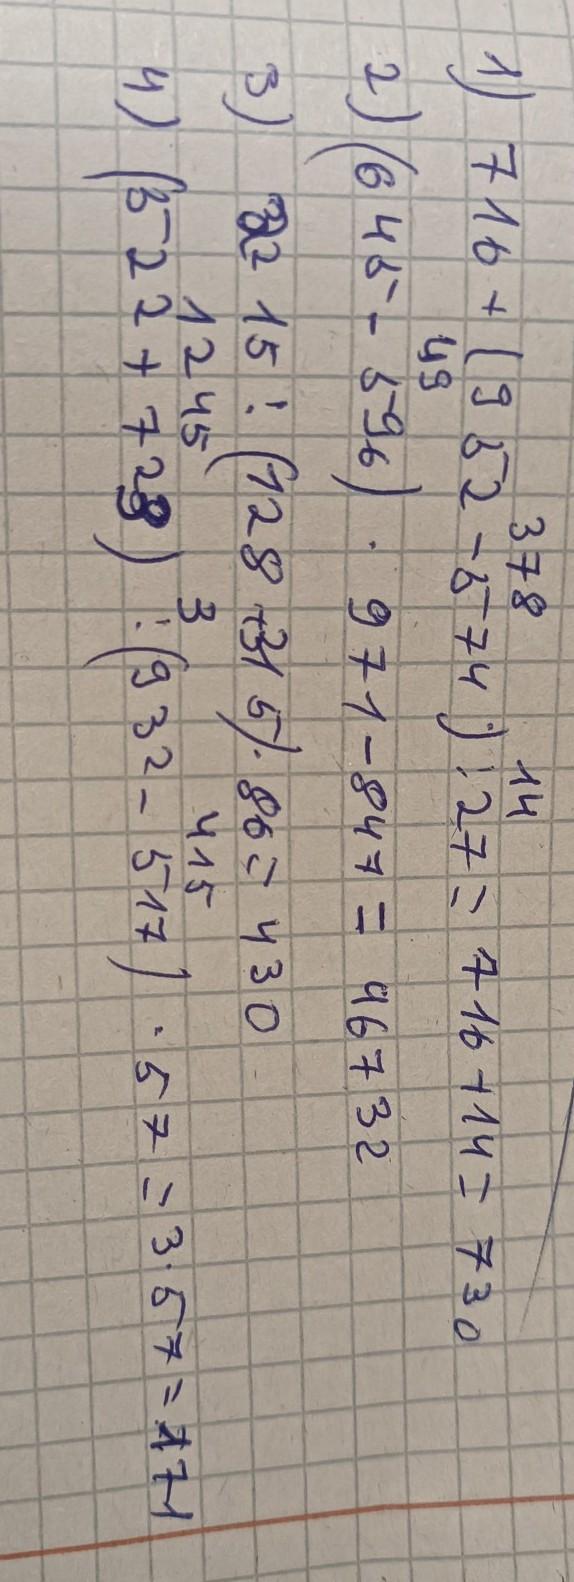 378 14
1) 716 + (952 - 574) : 27 = 716 + 14 = 730
49
2) (645 - 596) · 971 - 847 = 46732
3) 2215 : (128 + 315) · 86 = 430
1245 3 415
4) (522 + 723) : (932 - 517) · 57 = 3 · 57 = 171